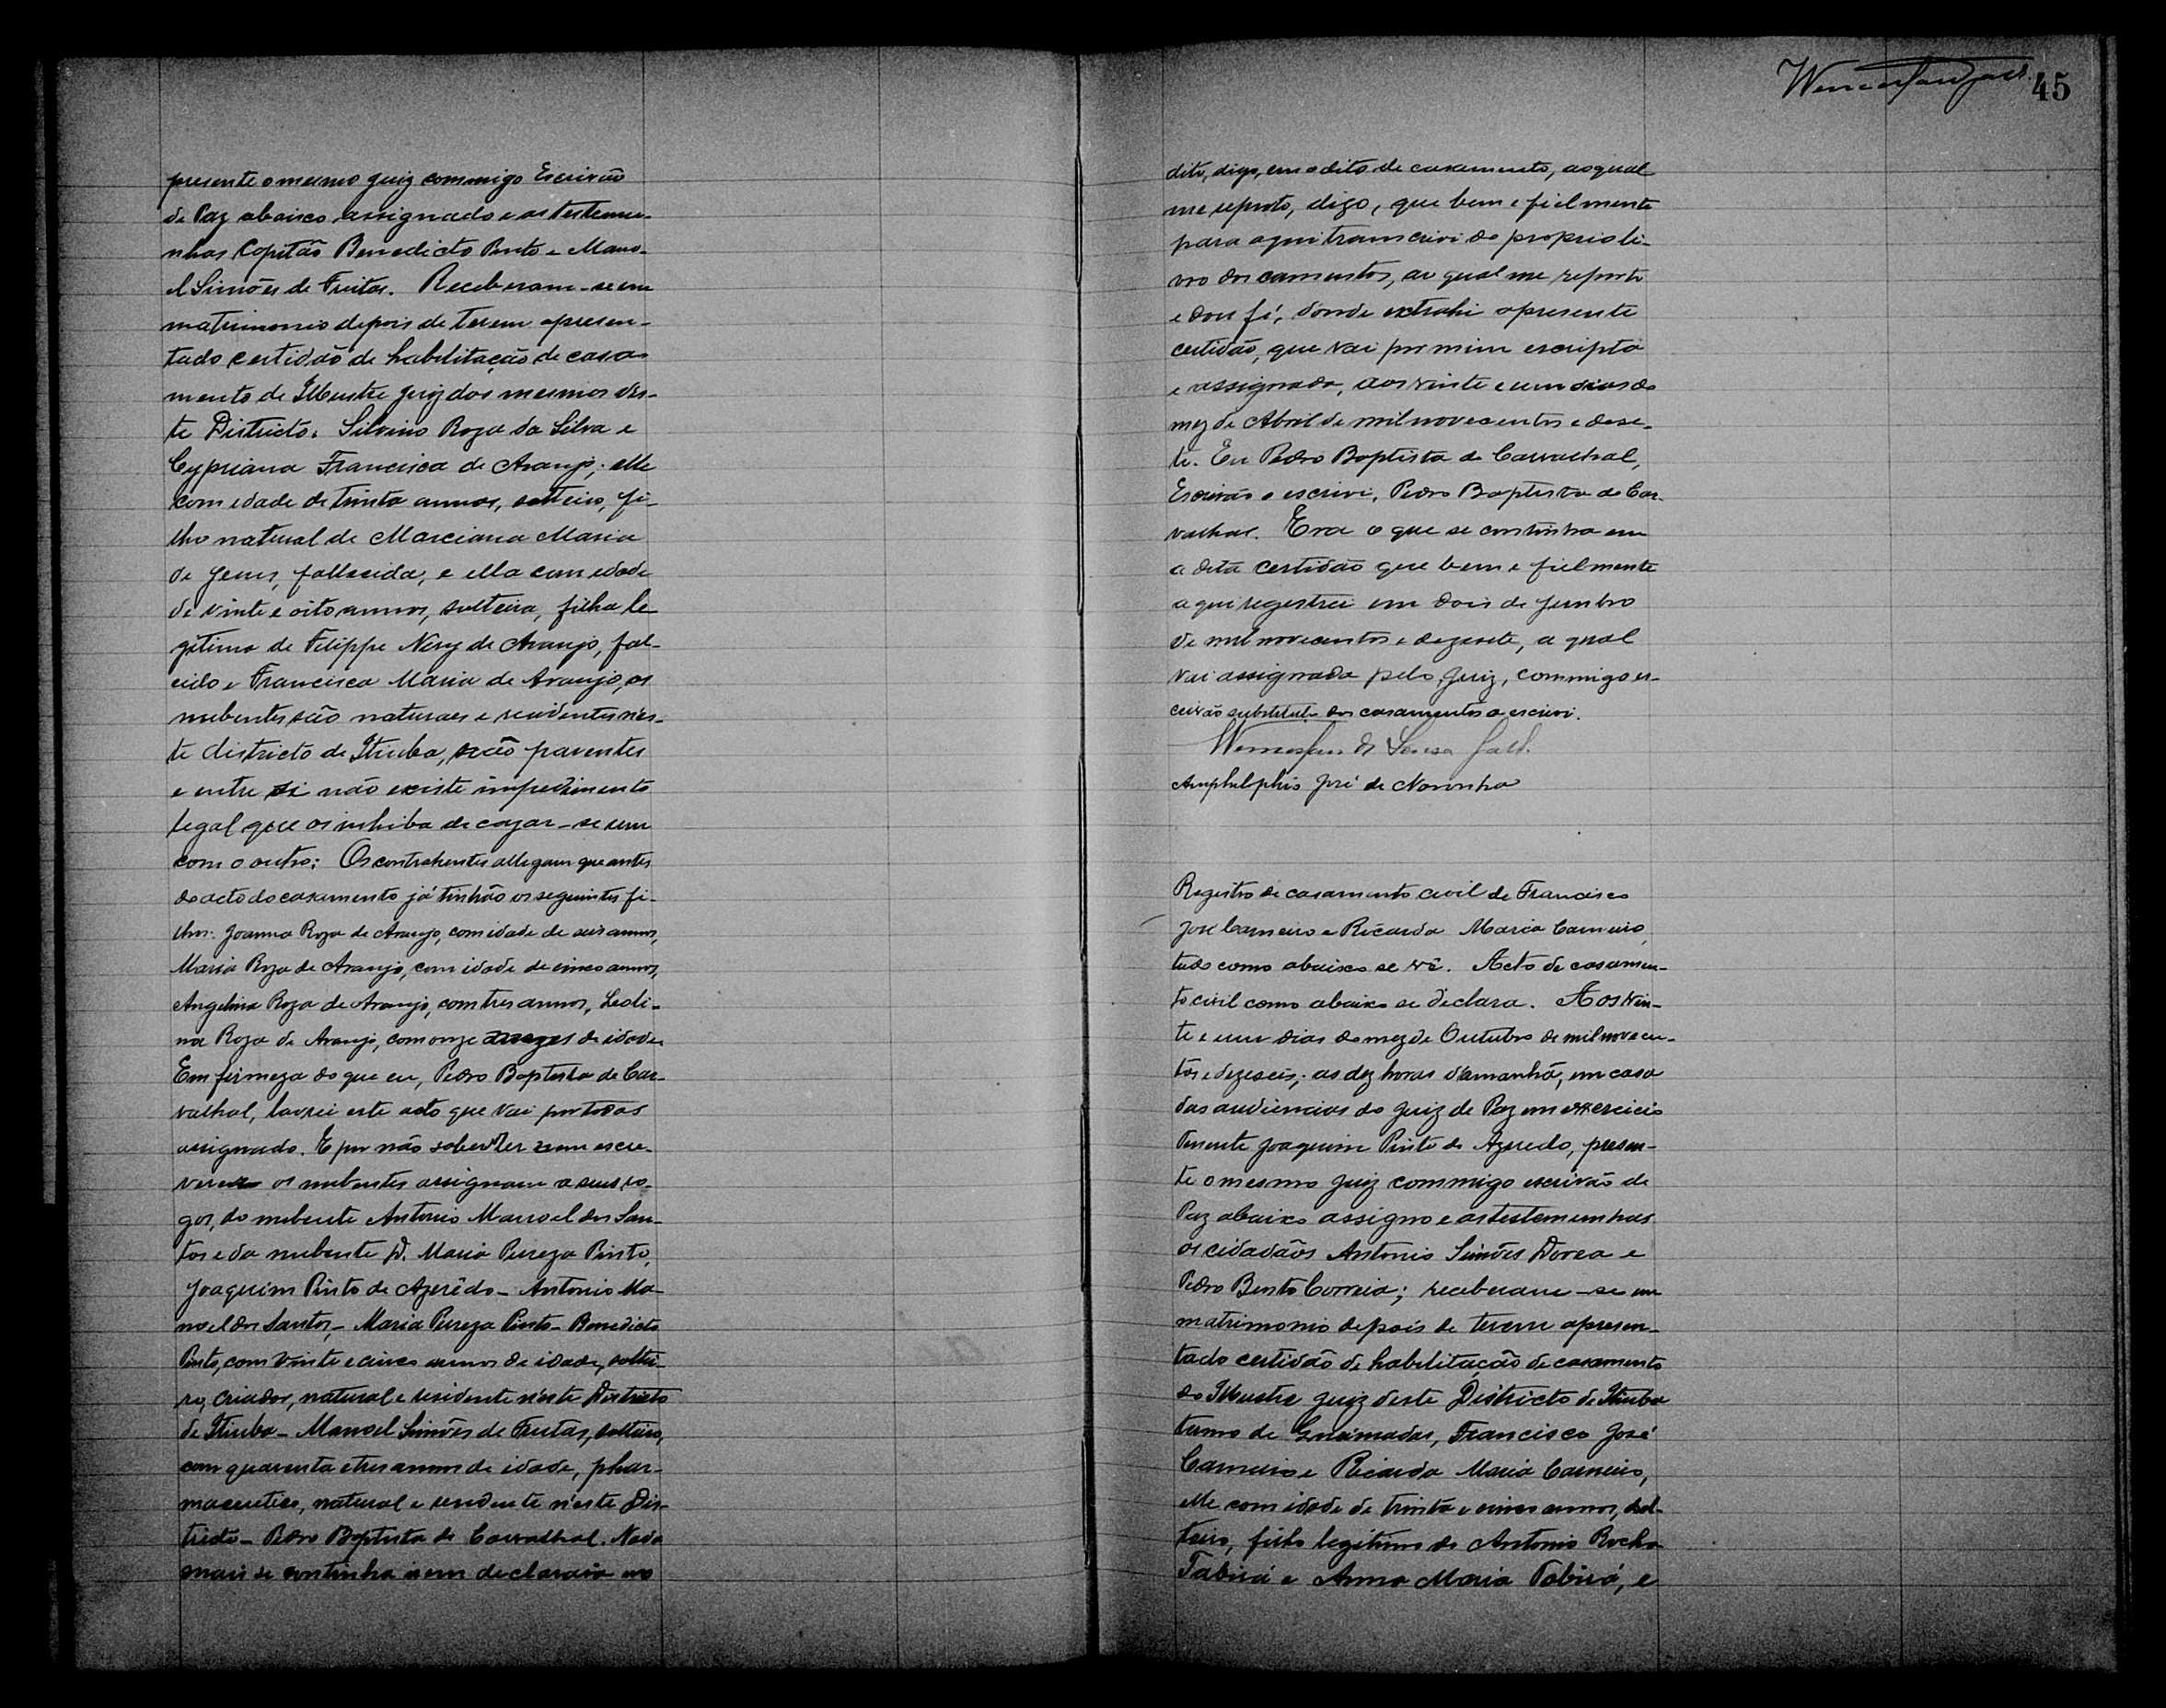 presente o mesmo Juiz commigo Escrivão
de Paz abaixo assignado e as testemu-
nhas Capitão Benedicto Pinto e Mano-
el Simões de Freitas. Receberam-se em
matrimonio depois de terem apresen-
tado certidão de habilitação de casa-
mento de Illustre Juiz dos mesmos des-
te Districto: Silvino Roza da Silva e
Cypriana Francisca de Araujo; elle
com edade de trinta annos, solteiro, fi-
lho natural de Marciana Maria
de Jesus, fallecida, e ella com edade
de vinte e oito annos, solteira, filha le
gitima de Filippe Nery de Araujo, fal-
cido e Francisca Maria de Araujo, os
nubentes são naturaes e residentes n'es-
te districto de Itiuba, são parentes
e entre si não existe impedimento
legal que os inhiba de cazar-se um
com o outro: Os contrahentes allegam que antes
do acto do casamento já tinhão os seguintes fi-
lhos: Joanna Roza de Araujo, com idade de seis annos,
Maria Roza de Araujo, com idade de cinco annos,
Angelina Roza de Araujo, com tres annos, Leoli-
na Roza de Araujo, com onze mezes de idade.
Em firmeza do que eu, Pedro Baptista de Car-
valhal, lavrei este acto que vai por todos
assignado. E por não saber ler nem escre-
verem os nubentes assignam a seus ro-
gos, do nubente Antonio Manoel dos San-
tos e da nubente D. Maria Pureza Pinto,
Joaquim Pinto de Azerêdo - Antonio Ma-
noel dos Santos, - Maria Pureza Pinto - Benedicto
Pinto, com vinte e cinco annos de idade, soltei-
ro, criador, natural e residente n'este Districto
de Itiuba - Manoel Simões de Freitas, solteiro,
com quarenta e tres annos de idade, phar-
maceutico, natural e residente n'este Dis-
tricto - Pedro Baptista de Carvalhal. Nada
mais se continha nem declarava no
45
dito, digo, em o dito de casamento, ao qual
me reporto, digo, que bem e fielmente
para aqui transcrivi do proprio li-
vro dos casamentos, ao qual me reporto
e dou fé, donde extrahi a presente
certidão, que vai por mim escripta
e assignada, aos vinte e um dias do
mez de Abril de mil novecentos e dese-
te. Eu Pedro Baptista de Carvalhal,
Escrivão o escrivi. Pedro Baptista de Car-
valhal. Era o que se continha em
a dita certidão que bem e fielmente
aqui registrei em dois de Junho
de mil novecentos e dezesete, a qual
vai assignada pelo Juiz, commigo es-
crivão substituto dos casamentos o escrivi.
de Sousa
José de Noronha
Registro de casamento civil de Francisco
José Carneiro e Ricarda Maria Carneiro,
tudo como abaixo se vê. Acto de casamen-
to civil como abaixo se declara. Aos vin-
te e um dias do mez de Outubro de mil novecen-
tos e dezeseis; as dez horas d'amanhã, em casa
das audiencias do Juiz de Paz em exercicio
Tenente Joaquim Pinto de Azeredo, presen-
te o mesmo Juiz commigo escrivão de
Paz abaixo assigno e as testemunhas
os cidadãos Antonio Simões Dorea e
Pedro Bento Correia; receberam-se em
matrimonio depois de terem apresen-
tado certidão de habilitação de casamento
do Illustre Juiz deste Districto de Itiuba
termo de Queimadas, Francisco José
Carneiro e Ricarda Maria Carneiro,
elle com idade de trinta e cinco annos, sol-
teiro, filho legitimo de Antonio Rocha
e Anna Maria, e